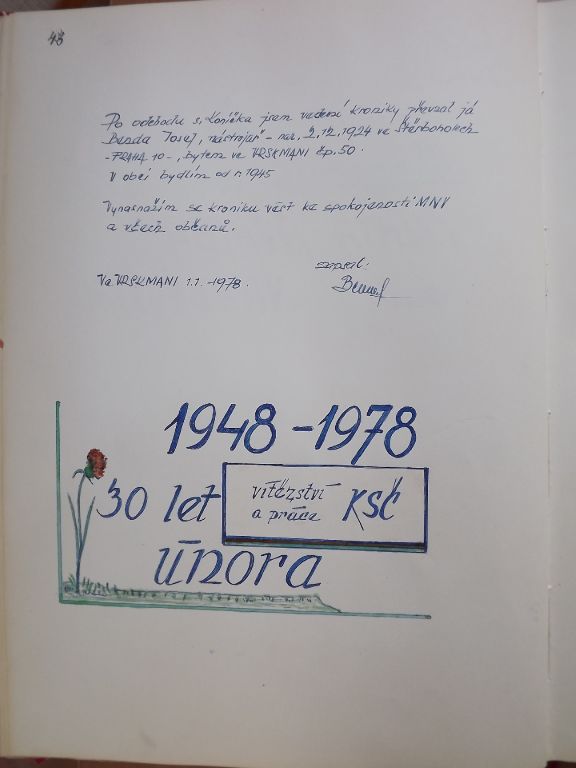 48
Po odchodu s. Koníčka jsem vedení kroniky převzal já
Benda Josef, nástrojař - nar. 2.12.1924 ve Štěrboholech
-PRAHA 10-, bytem ve VRSKMANI čp. 50.
V obci bydlím od r. 1945
Vynasnažím se kroniku vést ke spokojenosti MNV
a všech občanů.
zapsal:
Ve VRSKMANI 1.1.-1978.
1948-1978
30 let vítězství a práce KSČ
února